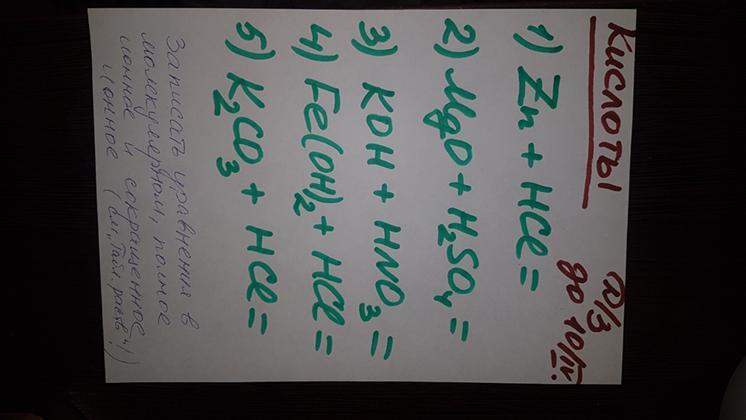 Кислоты
Д/З
до 10/IV.
1) Zn + HCl =
2) MgO + H₂SO₄ =
3) KOH + HNO₃ =
4) Fe(OH)₂ + HCl =
5) K₂CO₃ + HCl =
Записать уравнения в
молекулярном, полное
ионное и сокращенное
ионное (см. табл. раств!)